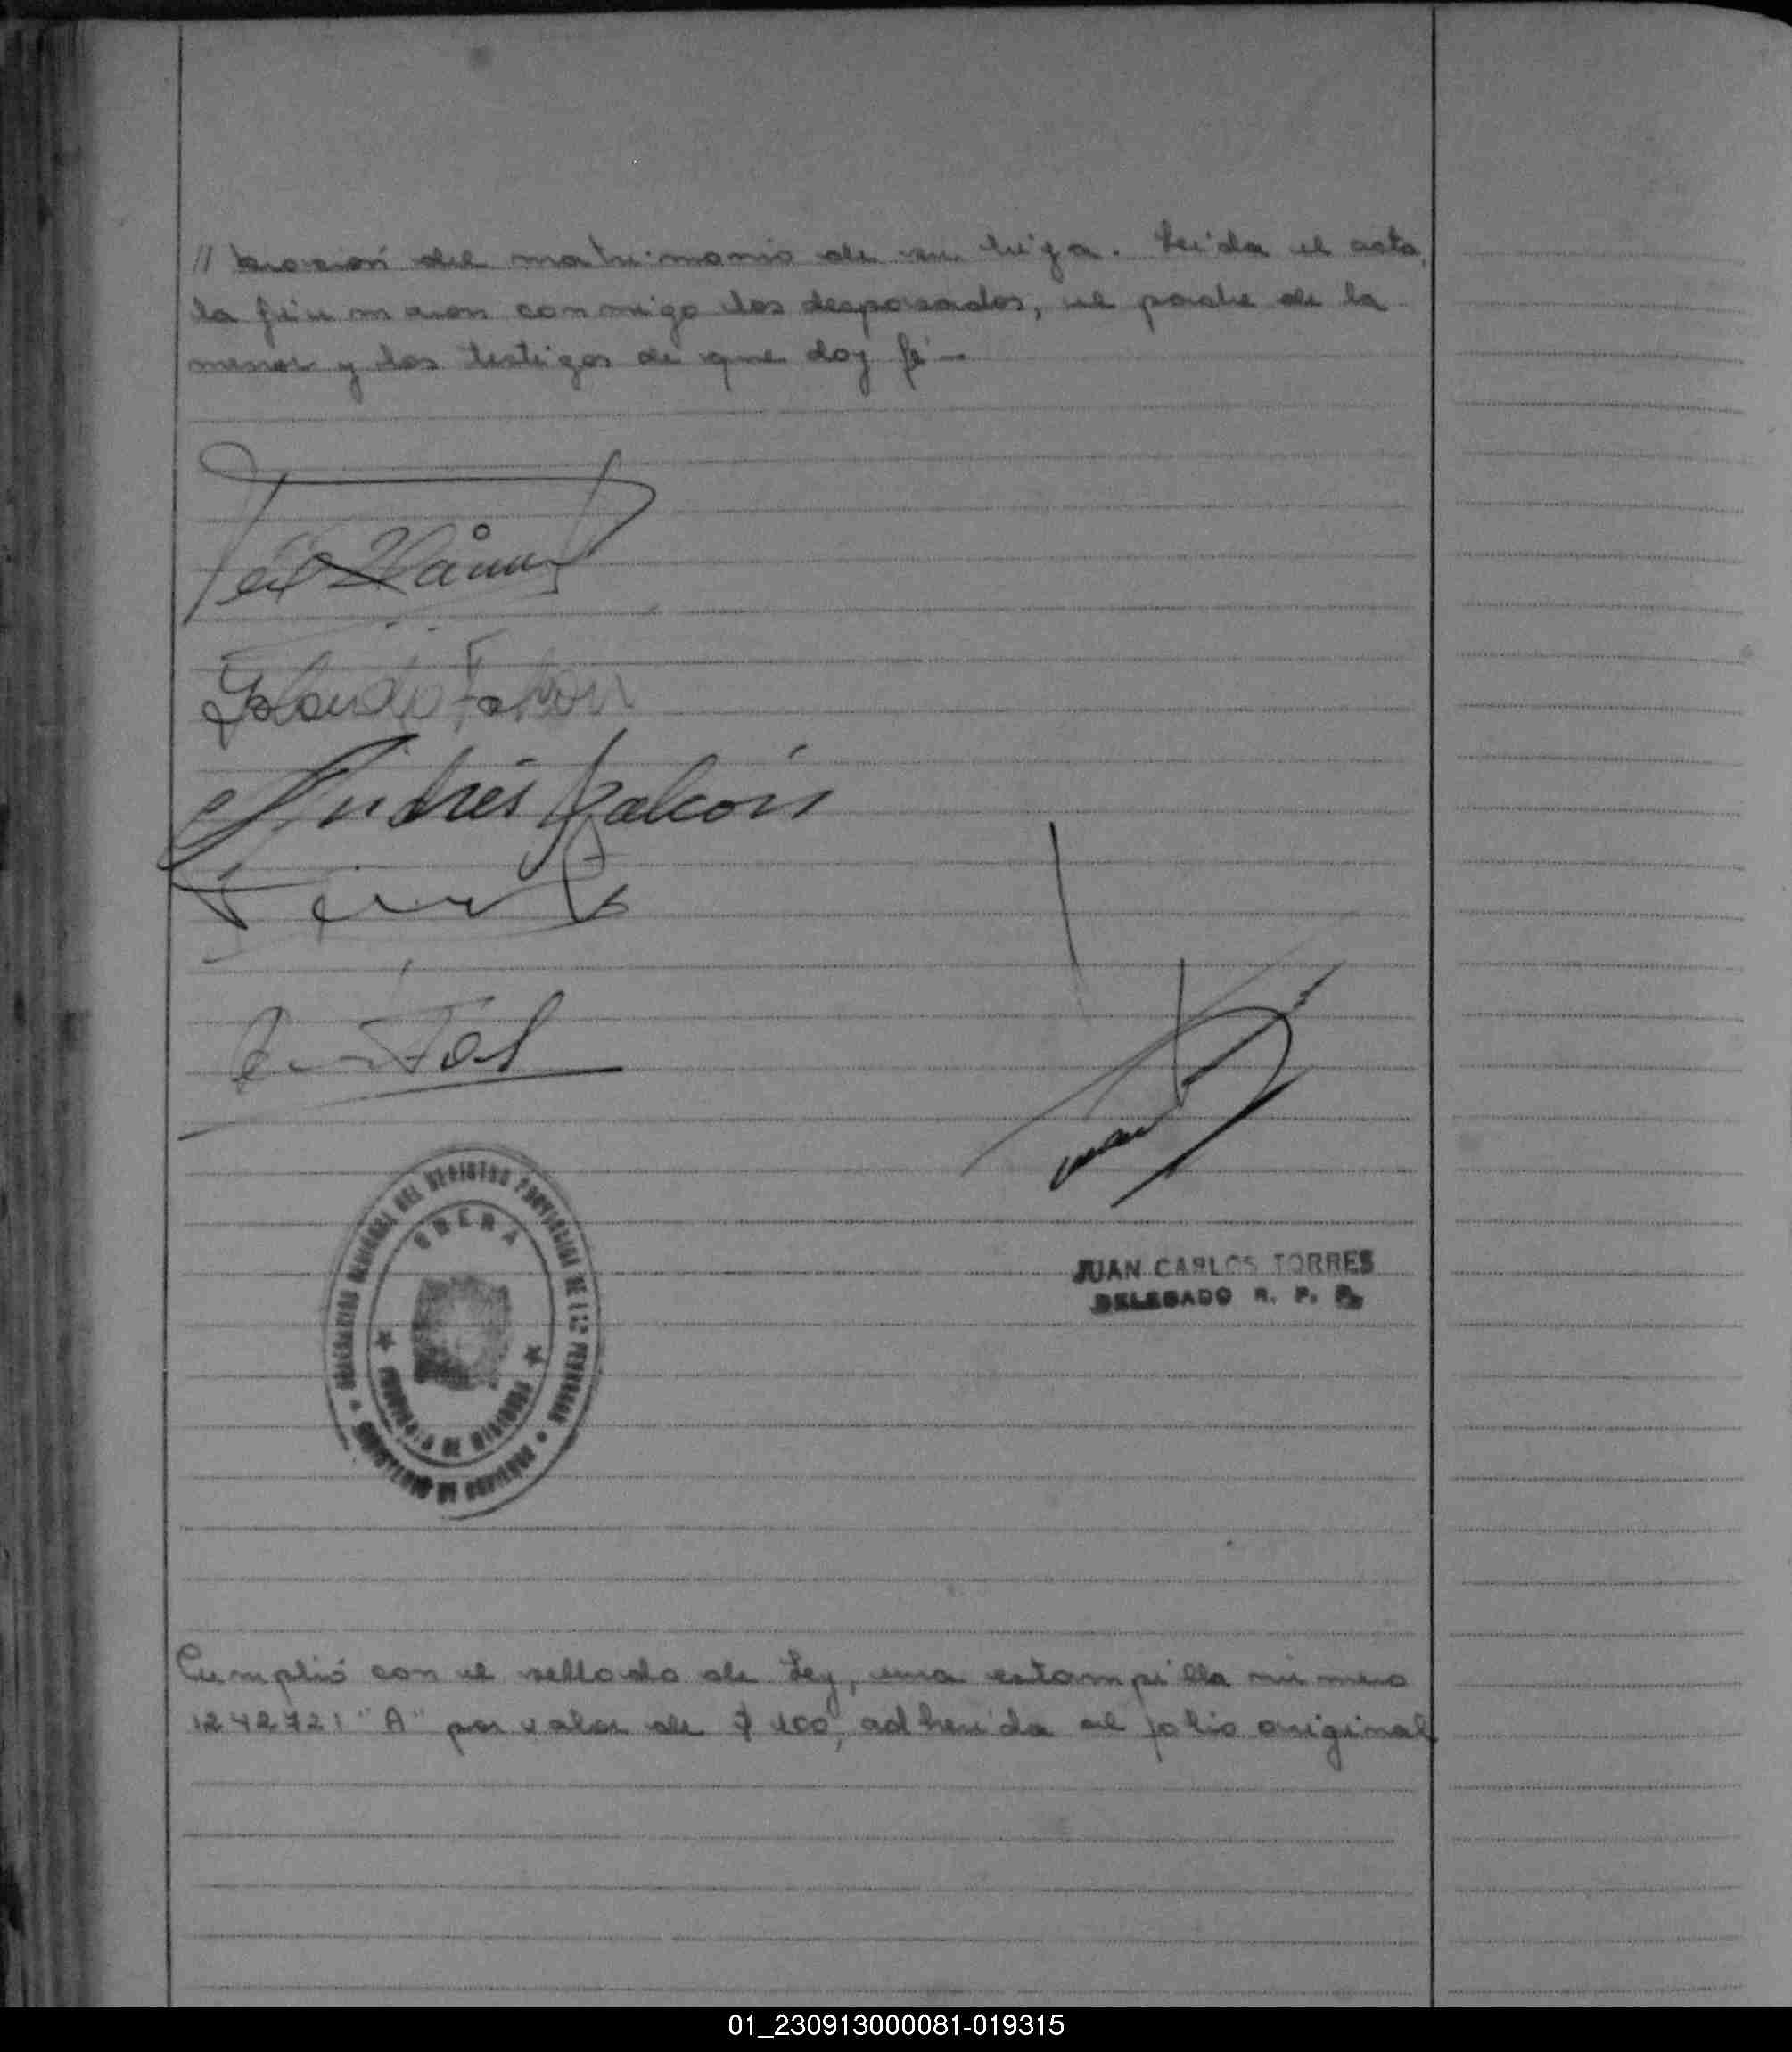 // bración del matrimonio de su hija. Leída el acta,
la firmaron conmigo los desposados, el padre de la
menor y los testigos de que doy fé -
Yolanda Falcón
Andrés Falcón
DELEGACION GENERAL DEL REGISTRO PROVINCIAL DE LAS PERSONAS
OBERA
PROVINCIA DE MISIONES
MINISTERIO DE GOBIERNO
JUAN CARLOS TORRES
DELEGADO R. P. P.
Cumplió con el sellado de Ley, una estampilla número
1242721 "A" por valor de $ 100, adherida al folio original
01_230913000081-019315